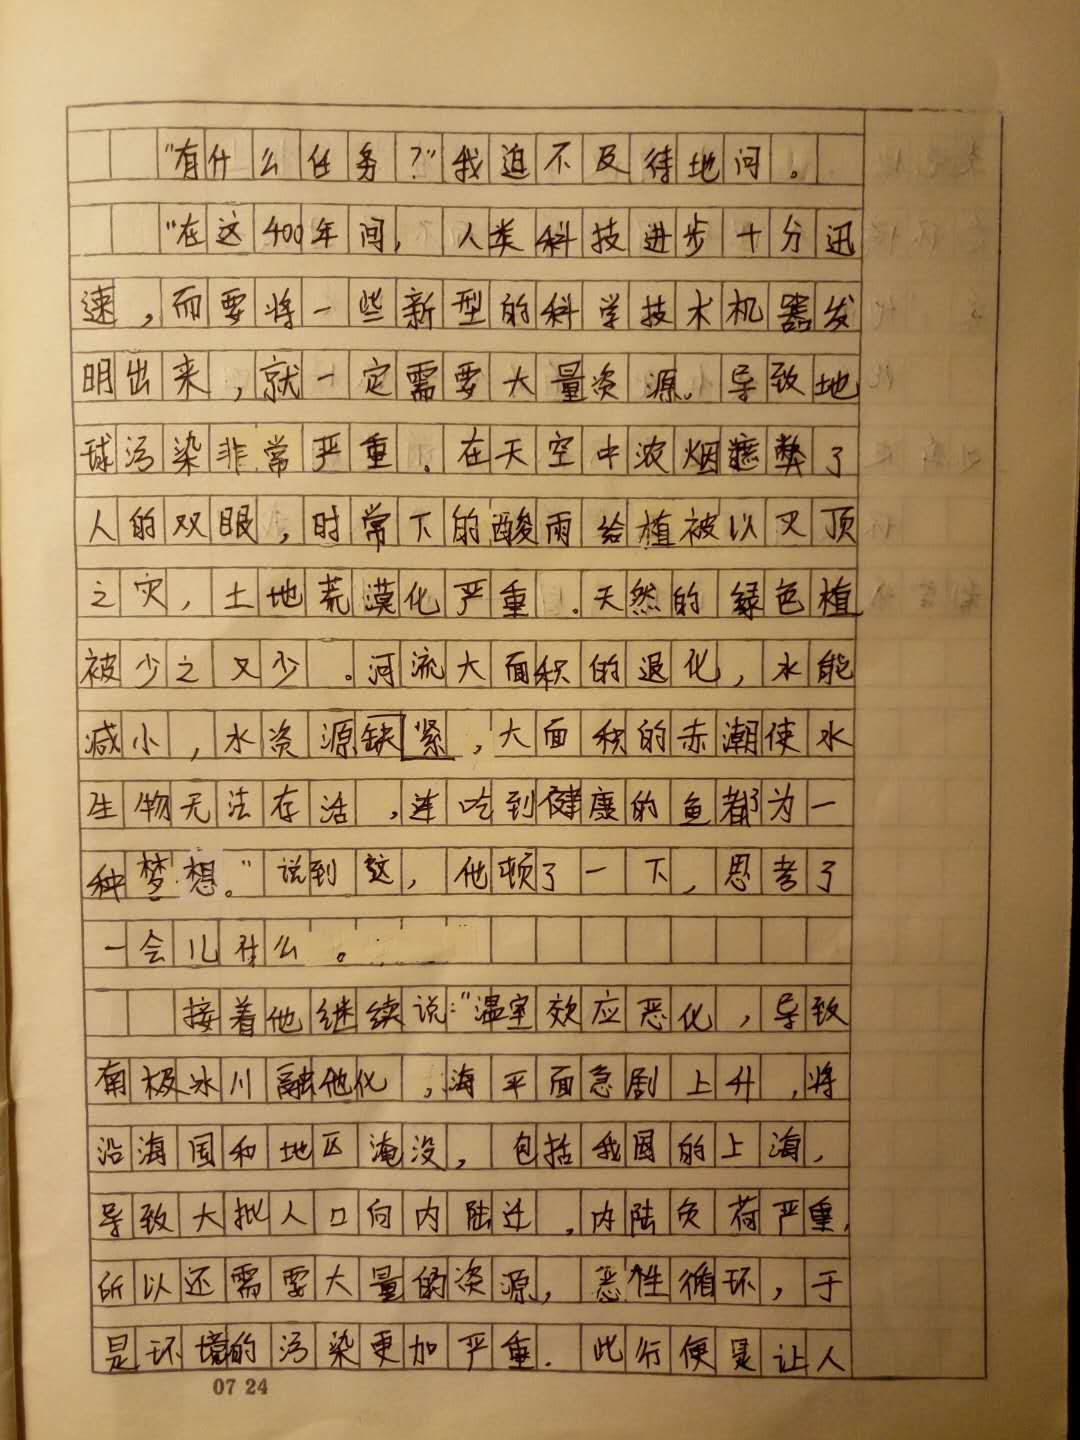 “有什么任务?”我迫不及待地问。
“在这400年间,人类科技进步十分迅
速,而要将一些新型的科学技术机器发
明出来,就一定需要大量资源。导致地
球污染非常严重。在天空中浓烟遮弊了
人的双眼,时常下的酸雨给植被以灭顶
之灾,土地荒漠化严重.天然的绿色植
被少之又少。河流大面积的退化,水能
减小,水资源缺紧,大面积的赤潮使水
生物无法存活,连吃到健康的鱼都为一
种梦想。”说到这,他顿了一下,思考了
一会儿什么。
接着他继续说:“温室效应恶化,导致
南极冰川融化,海平面急剧上升,将
沿海国和地区淹没,包括我国的上海,
导致大批人口向内陆迁.内陆负荷严重,
所以还需要大量的资源,恶性循环,于
是环境的污染更加严重.此行便是让人
07 24